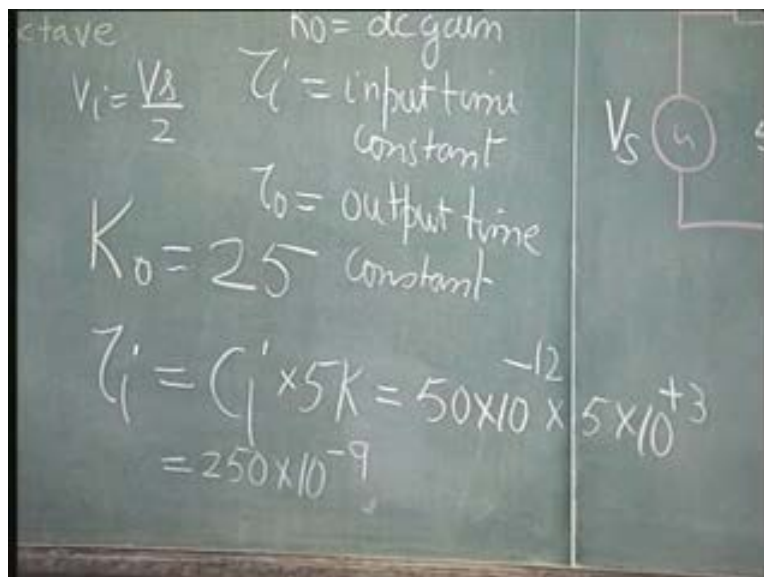 ctave
K₀ = dc gain
Vᵢ = Vs/2
τᵢ = input time
constant
τ₀ = output time
constant
K₀ = 25
τᵢ = Cᵢ × 5K = 50×10⁻¹² × 5×10⁺³
= 250×10⁻⁹
Vs
5